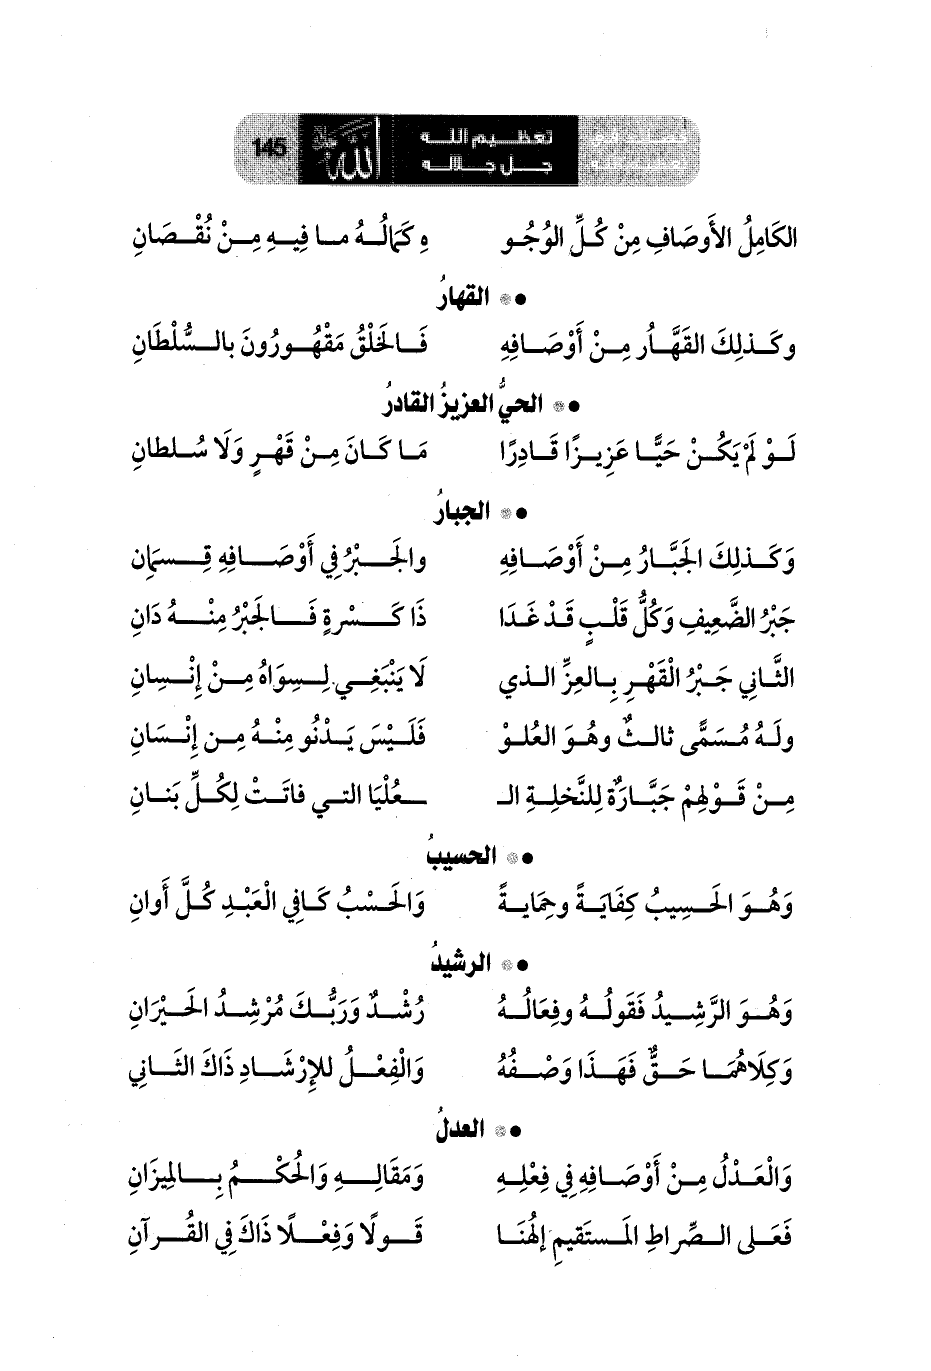 145
تعظيم الله
جل جلاله
الكَامِلُ الأَوصَافِ مِنْ كُلِّ الوُجُو وِ كَمَالُهُ ما فِيهِ مِنْ نُقْصَانِ
القهارُ
وكَذلِكَ القَهَّارُ مِنْ أَوْصَافِهِ فَالخَلْقُ مَقْهُورُونَ بالسُّلْطَانِ
الحيُّ العزيزُ القادرُ
لَوْ لَمْ يَكُنْ حَيًّا عَزِيزًا قَادِرًا مَا كَانَ مِنْ قَهْرٍ وَلَا سُلطانِ
الجبارُ
وَكَذلِكَ الجَبَّارُ مِنْ أَوْصَافِهِ والجَبْرُ فِي أَوْصَافِهِ قِسمَانِ
جَبْرُ الضَّعِيفِ وَكُلُّ قَلْبٍ قَدْ غَدَا ذَا كَسْرةٍ فَالجَبْرُ مِنْهُ دَانِ
الثَّانِي جَبْرُ الْقَهْرِ بِالعِزِّ الذي لَا يَنْبَغِي لِسِوَاهُ مِنْ إِنْسانِ
ولَهُ مُسَمًّى ثالثٌ وهُوَ العُلوْ فَلَيْسَ يَدْنُو مِنْهُ مِن إِنْسَانِ
مِنْ قَوْلِهِمْ جَبَّارَةٌ لِلنَّخلِةِ الـ ـعُلْيَا التي فاتَتْ لِكُلِّ بَنانِ
الحسيبُ
وَهُوَ الحَسِيبُ كِفَايَةً وحِمَايةً وَالحَسْبُ كَافِي الْعَبْدِ كُلَّ أَوانِ
الرشيدُ
وَهُوَ الرَّشِيدُ فَقَولُهُ وفِعَالُهُ رُشْدٌ وَرَبُّكَ مُرْشِدُ الحَيْرَانِ
وَكِلَاهُمَا حَقٌّ فَهَذَا وَصْفُهُ وَالْفِعْلُ للإِرْشَادِ ذَاكَ الثَانِي
العدلُ
وَالْعَدْلُ مِنْ أَوْصَافِهِ فِي فِعْلِهِ وَمَقَالِهِ وَالحُكْمُ بِالمِيزَانِ
فَعَلى الصِّراطِ المَستَقيمِ إلهُنَا قَولًا وَفِعْلًا ذَاكَ فِي القُرآنِ